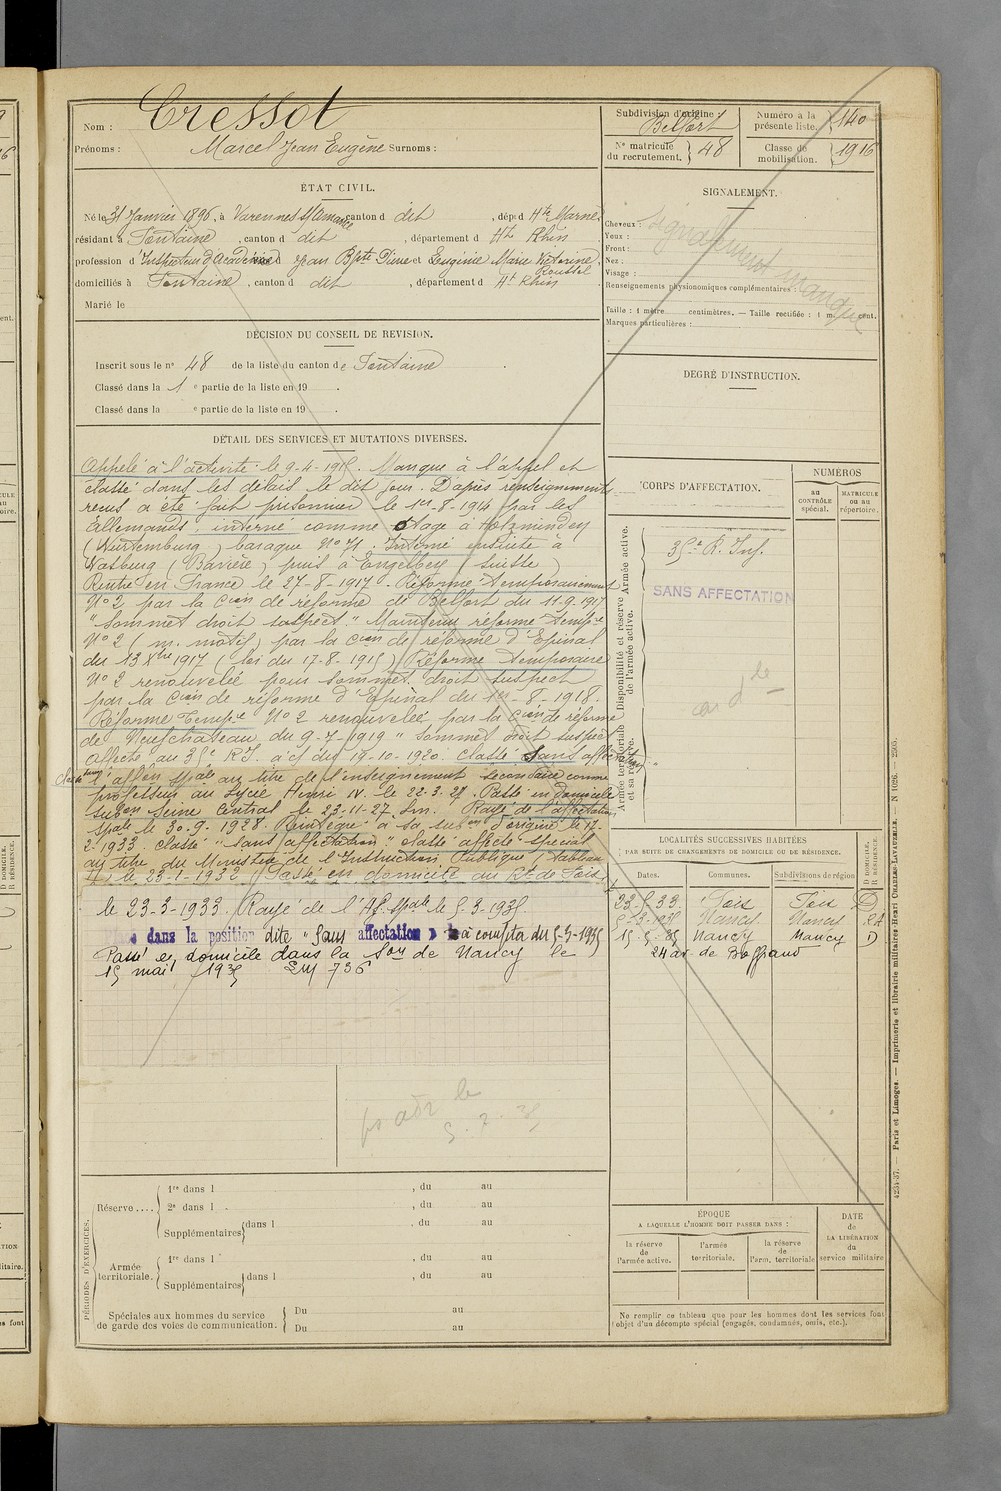 Nom : Cressot
Prénoms : Marcel Jean Eugène Surnoms :
Subdivision d'origine : Belfort
Numéro à la présente liste. 140
Nº matricule du recrutement. 48
Classe de mobilisation. 1916
ÉTAT CIVIL.
Né le 31 Janvier 1896, à Varennes s/Amance canton d dit, dép d Hte Marne
résidant à Fontaine, canton d dit, département d Ht Rhin
profession d'Inspecteur d'Académie d Jean Bpte Dieu et Eugénie Marie Victorine Roussel
domiciliés à Fontaine, canton d dit, département d Ht Rhin
Marié le
DÉCISION DU CONSEIL DE REVISION.
Inscrit sous le nº 48 de la liste du canton de Fontaine.
Classé dans la 1e partie de la liste en 19 .
Classé dans la e partie de la liste en 19 .
SIGNALEMENT.
Cheveux :
Yeux :
Front :
Nez :
Visage :
Signalement manque
Renseignements physionomiques complémentaires :
Taille : 1 mètre centimètres. — Taille rectifiée : 1 m. cent.
Marques particulières :
DEGRÉ D'INSTRUCTION.
DÉTAIL DES SERVICES ET MUTATIONS DIVERSES.
Appelé à l'activité le 9-4-1915. Manque à l'appel et
classé dans les délais le dit jour. D'après renseignements
reçus a été fait prisonnier le 1er-8-1914 par les
allemands interné comme otage à Holzminden
(Wurtemburg) baraque Nº 71. Interné ensuite à
(Bavière) puis à Engelberg (Suisse)
Rentré en France le 27-8-1917. Réformé temporairement
Nº 2 par la Cion de réforme de Belfort du 11-9-1917
"Sommet droit suspect." Maintenu réformé tempre
Nº 2 (m. motif) par la Cion de réforme d'Epinal
du 13 Xbre 1917 (loi du 17-8-1915) Réforme temporaire
Nº 2 renouvelée pour sommet droit suspect
par la Cion de réforme d'Epinal du 1er-8-1918.
Réforme Tempre Nº 2 renouvelée par la Cion de réforme
de Neufchateau du 9-7-1919 "Sommet droit suspect
Affecté au 35e R.I. à c/ du 19-10-1920. Classé sans affectation"
Classé dans l'affon spale au titre de l'enseignement secondaire comme
professeur au Lycée Henri IV. le 22-3-27. Passé en domicile
subon Seine Central le 23-11-27. Rayé de l'affectation
spale le 30-9-1928. Réintégré à sa subon d'origine le 17-
2-1933. Classé "Sans affectation" classé affecté spécial
au titre du Ministère de l'Instruction Publique (tableau
le 23-1-1932 Passé en domicile au Rt de
le 23-3-1933. Rayé de l'Af. Spale le 5-3-1935
dans la position dite "Sans affectation" à compter du 5-3-1935
Passé en domicile dans la Son de Nancy le
15 mai 1935
CORPS D'AFFECTATION.
NUMÉROS
au CONTRÔLE spécial.
MATRICULE ou au répertoire.
Armée active.
Disponibilité et réserve de l'armée active.
Armée territoriale et sa réserve.
35e R. Inf.
SANS AFFECTATION
LOCALITÉS SUCCESSIVES HABITÉES
PAR SUITE DE CHANGEMENTS DE DOMICILE OU DE RÉSIDENCE.
Dates. Communes. Subdivisions de région D DOMICILE. R RÉSIDENCE.
5-3-1935 Nancy Nancy
15-5-35 Nancy Nancy D
24 av. de Boffrand
PÉRIODES D'EXERCICES.
Réserve....
1re dans l , du au
2e dans l , du au
Supplémentaires dans l , du au
Armée territoriale.
1re dans l , du au
Supplémentaires dans l , du au
Spéciales aux hommes du service de garde des voies de communication.
Du au
Du au
ÉPOQUE
A LAQUELLE L'HOMME DOIT PASSER DANS :
la réserve de l'armée active.
l'armée territoriale.
la réserve de l'arm. territoriale
DATE de LA LIBÉRATION du service militaire
Ne remplir ce tableau que pour les hommes dont les services font
l'objet d'un décompte spécial (engagés, condamnés, omis, etc.).
4234-37. — Paris et Limoges. — Imprimerie et librairie militaires Henri CHARLES-LAVAUZELLE. — N 1026.